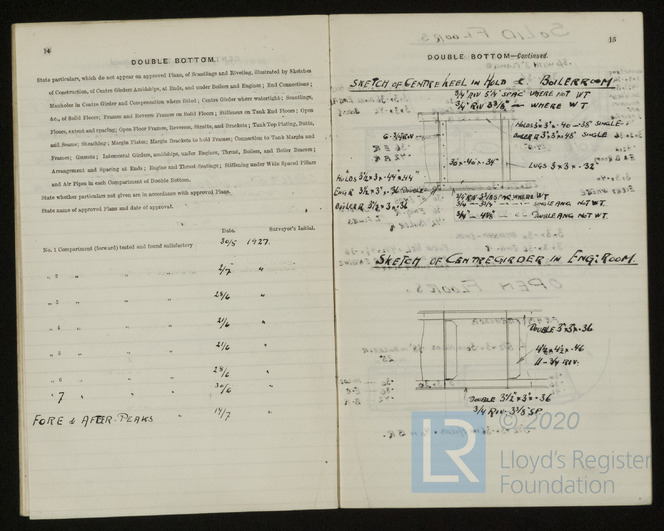 14
DOUBLE BOTTOM.
State particulars, which do not appear on approved Plans, of Scantlings and Riveting, illustrated by Sketches
of Construction, of Centre Girders Amidships, at Ends, and under Boilers and Engines; End Connections;
Manholes in Centre Girder and Compensation where fitted; Centre Girder where watertight; Scantlings,
&c., of Solid Floors; Frames and Reverse Frames on Solid Floors; Stiffeners on Tank End Floors; Open
Floors, extent and spacing; Open Floor Frames, Reverses, Struts, and Brackets; Tank Top Plating, Butts,
and Seams; Sheathing; Margin Plates; Margin Brackets to hold Frames; Connection to Tank Margin and
Frames; Gussets; Intercostal Girders, amidships, under Engines, Thrust, Boilers, and Boiler Bearers;
Arrangement and Spacing at Ends; Engine and Thrust Seatings; Stiffening under Wide Spaced Pillars
and Air Pipes in each Compartment of Double Bottom.
State whether particulars not given are in accordance with approved Plans.
State name of approved Plans and date of approval.
Date. Surveyor's Initial.
No. 1 Compartment (forward) tested and found satisfactory 30/5 1927.
„ 2 „ „ „ 2/7 „
„ 3 „ „ „ 28/6 „
„ 4 „ „ „ 21/6 „
„ 5 „ „ „ 21/6 „
„ 6 „ „ „ 28/6 „
„ 7 „ „ „ 30/6 „
FORE & AFTER PEAKS „ 14/7 „
15
DOUBLE BOTTOM—Continued.
SKETCH OF CENTRE KEEL IN HOLD & BOILER ROOM
3/4 RIV 5 1/4 SPAC WHERE NOT WT
3/4 RIV 3 3/8 — WHERE WT
30 × 40 × 34"
LUGS 3 × 3 × .32"
HOLDS 3 1/2 × 3 × .44
ENGR 3 1/2 × 3" × .36 DOUBLE
BOILER 3 1/2 × 3 × .36
DOUBLE ANG NOT WT.
SKETCH OF CENTRE GIRDER IN ENG: ROOM.
DOUBLE 3" × 3" × .36
4 1/2 × 4 1/2 × .46
11 - 3/4 RIV.
DOUBLE 3 1/2" × 3" × .36
3/4 RIV. 3 3/8" SP.
© 2020
LR
Lloyd's Register
Foundation